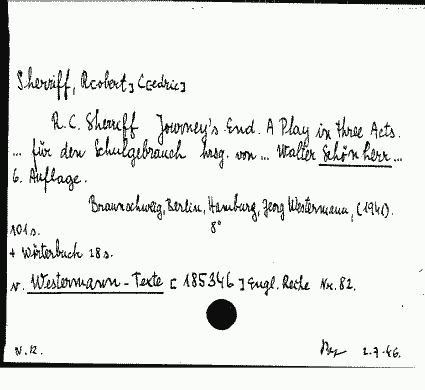 Sherriff, R[obert] C[edric]
R.C. Sherriff Journey's End. A Play in three Acts.
... für den Schulgebrauch hrsg. von ... Walter Schönherr ...
6. Auflage.
Braunschweig, Berlin, Hamburg, Georg Westermann, (1941).
101 s. 8°
+ Wörterbuch 28 s.
v. Westermann-Texte [185346] Engl. Reihe Nr. 82.
N.12. 2.7.46.